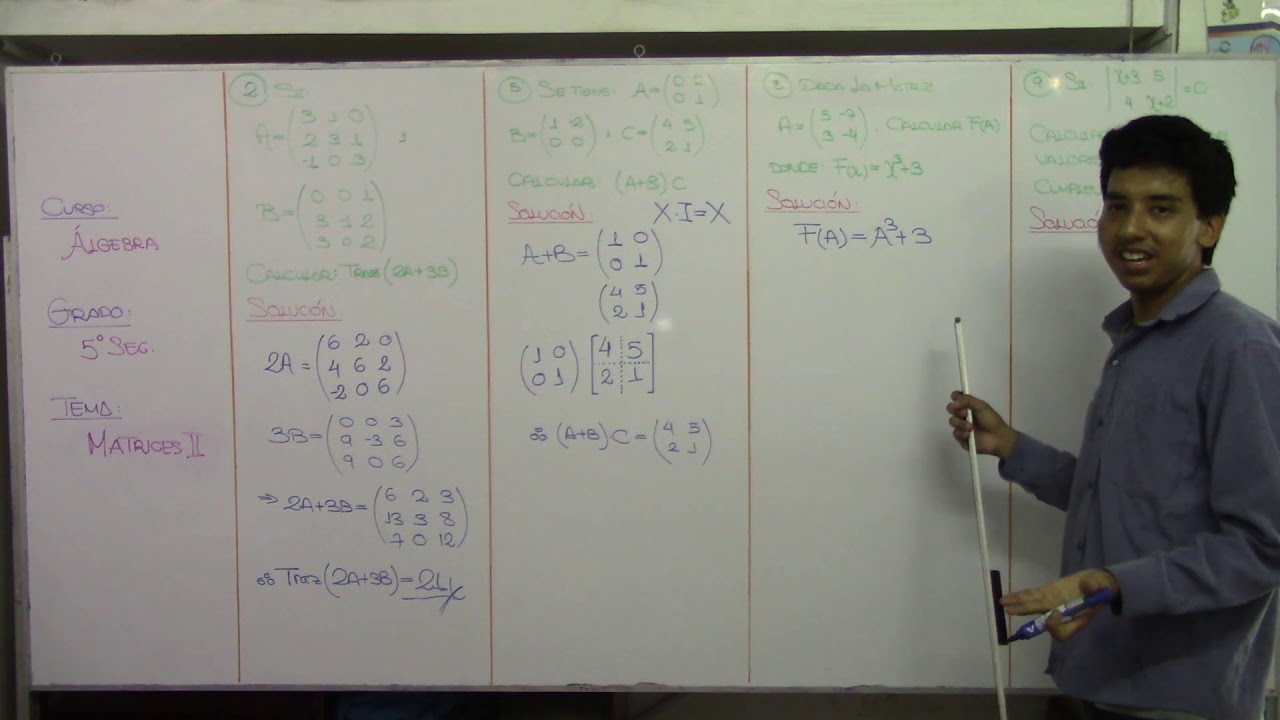 CURSO:
ÁLGEBRA
GRADO:
5° SEG.
TEMA:
MATRICES II
2 Si
A= (3 1 0
2 3 1 ,
-1 0 3)
B= (0 0 1
3 -1 2
3 0 2)
CALCULAR: Traz(2A+3B)
SOLUCIÓN
2A = (6 2 0
4 6 2
-2 0 6)
3B= (0 0 3
9 -3 6
9 0 6)
⇒ 2A+3B= (6 2 3
13 3 8
7 0 12)
∴ Traz(2A+3B)=21
5 SE TIENE: A= (0 2
0 1)
B= (1 -2
0 0) , C= (4 5
2 1)
CALCULAR: (A+B)C
SOLUCIÓN: X.I=X
A+B= (1 0
0 1)
(4 5
2 1)
(1 0 [4 5
0 1) 2 1]
∴ (A+B)C = (4 5
2 1)
DADA LA MATRIZ
A= (5 -7
3 -4) . CALCULAR F(A)
DONDE: F(x)= x³+3
SOLUCIÓN:
F(A)=A³+3
9 Si |x+3 5
4 x+2| =0
CALCULAR
VALORES